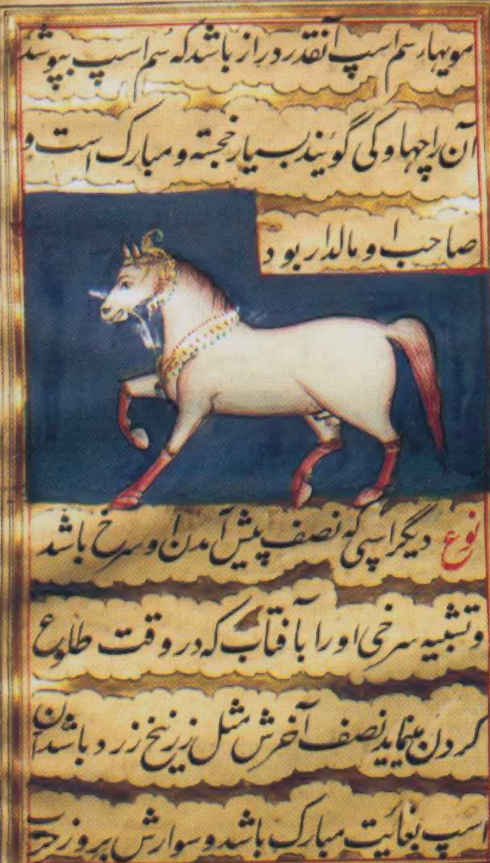 مویهار سم اسپ آنقدر دراز باشد که سُم اسپ بپوشد
آن را چهاوکی گویند بسیار خجسته و مبارک است و
صاحب او مالدار بود
نوع دیگر اسپی که نصف پیش آمدن او سرخ باشد
و تشبیه سرخی او را بآفتاب که در وقت طلوع
کردن مینماید نصف آخرش مثل زرنیخ زرد باشد آن
اسپ بغایت مبارک باشد و سوارش بروز